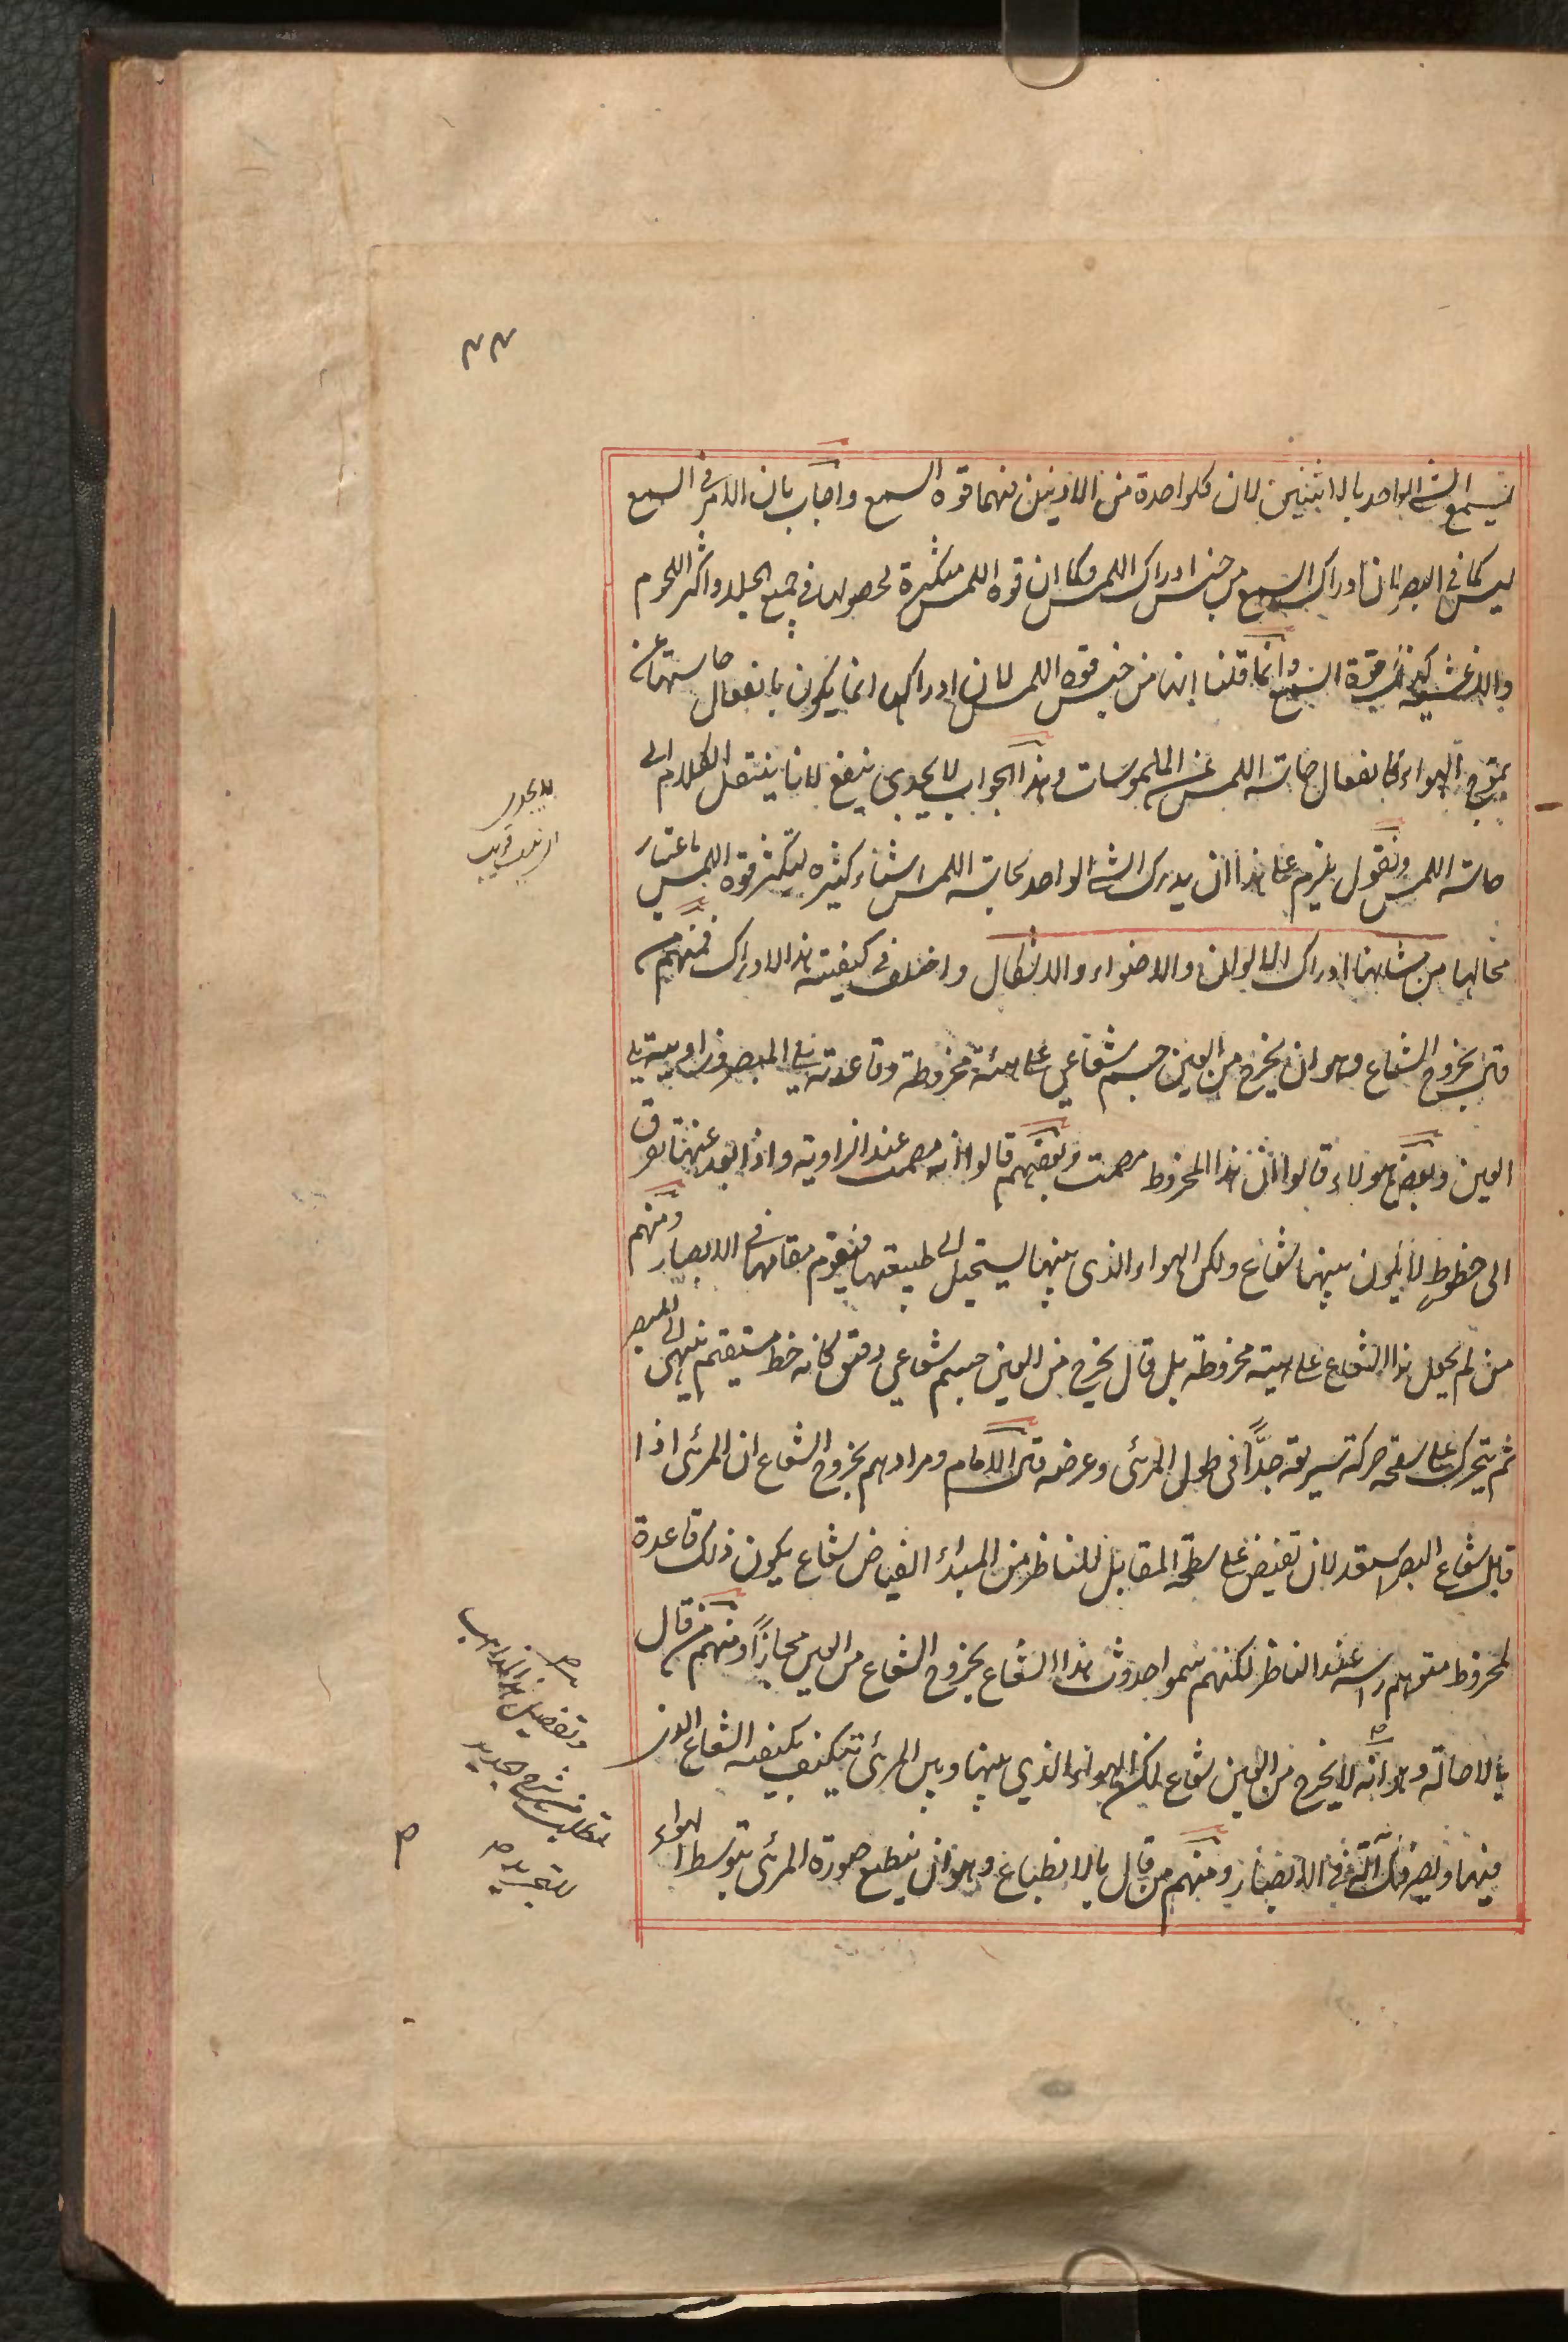 ٤٤
ليسمع الشئ الواحد بالاثنين لان كلواحدة من الاذنين فيهما قوة السمع واجاب بان الامر في السمع
ليس كما في البصر لان ادراك السمع من جنس ادراك اللمس وكما ان قوه اللمس متكثيرة لحصولها في جميع الجلد واكثر اللحوم
والاغشيه كذلك قوة السمع وانما قلنا انها من جنس قوه اللمس لان ادراكها انما يكون بانفعال حاستها عن
تموج الهواء كانفعال حاسته اللمس عن الملموسات وهذا الجواب لا يجدى بنفع لانا ينتقل الكلام الى
حاسته اللمس ونقول يلزم على هذا ان يدرك الشئ الواحد بحاسته اللمس اشياء كثيره لتكثر قوه اللمس باعتبار
محالها من شانها ادراك الالوان والاضواء والاشكال واختلف في كيفيته هذا الادراك فمنهم من
قال بخروج الشعاع وهو ان يخرج من العين جسم شعاعي على هيئة مخروطة وقاعدته يلى المبصر وزاويته يلى
العين وبعض هولاء قالوا ان هذا المخروط مصمت وبعضهم قالوا انه مصمت عند الزاويته واذا بعد عنها تفرق
الى خطوطٍ لا يكون بينهما شعاع ولكن الهواء الذى بينهما يستحيل الى طبيعتها فيقوم مقامهما في الابصار ومنهم
من لم يجعل هذا الشعاع على هيئة مخروطة بل قال يخرج من العين جسم شعاعي دقيق كانه خط مستقيم ينتهى الى المبصر
ثم يتحرك على سطحه حركة سريعة جدًّا في طول المرئى وعرضه قال الامام ومرادهم بخروج الشعاع ان المرئى اذا
قابل شعاع البصر استعد لان تفيض على سطحه المقابل للناظر من المبداء الفياض شعاع يكون ذلك قاعدة
لمخروط متوهم راسه عند الناظر لكنهم سموا حدوث هذا الشعاع بخروج الشعاع من العين مجازاً ومنهم من قال
بالاحالة وهو انه لا يخرج من العين شعاع لكن الهواء الذي بينهما وبين المرئى تتكيف بكيفيه الشعاع الذى
فيهما ويصير ذلك آلة في الابصار ومنهم من قال بالانطباع وهو ان ينطبع صورة المرئى بتوسط الهواء
لا يجدى
وتفصيل هذا المذاهب
شرح جديد
للتجريد